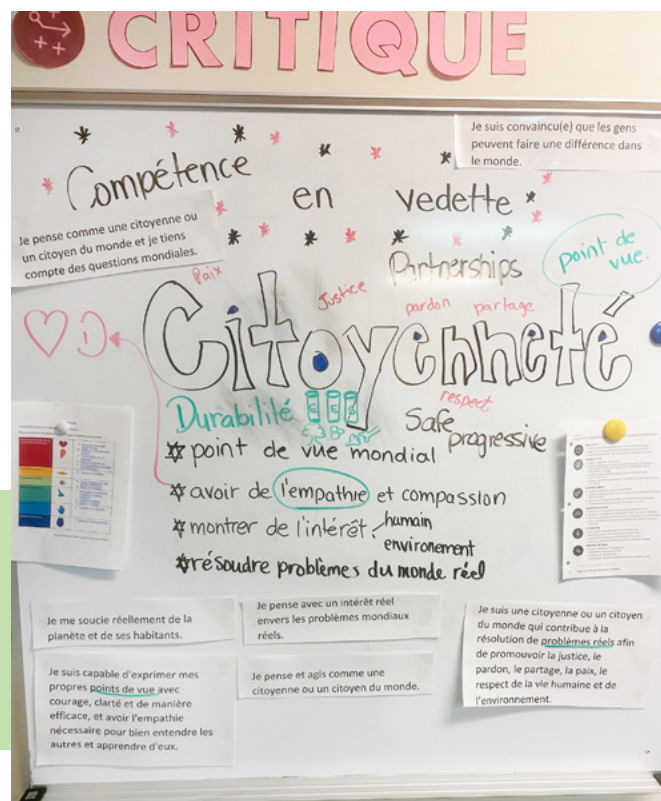 CRITIQUE
Je suis convaincu(e) que les gens
peuvent faire une différence dans
le monde.
Compétence
en
vedette
Je pense comme une citoyenne ou
un citoyen du monde et je tiens
compte des questions mondiales.
Partnerships
point de
vue.
Paix
Justice
pardon
partage
Citoyenneté
Durabilité
respect
Safe
progressive
point de vue mondial
avoir de l'empathie et compassion
montrer de l'intérêt
humain
environement
résoudre problèmes du monde réel
Je me soucie réellement de la
planète et de ses habitants.
Je pense avec un intérêt réel
envers les problèmes mondiaux
réels.
Je suis une citoyenne ou un citoyen
du monde qui contribue à la
résolution de problèmes réels afin
de promouvoir la justice, le
pardon, le partage, la paix, le
respect de la vie humaine et de
l'environnement.
Je suis capable d'exprimer mes
propres points de vue avec
courage, clarté et de manière
efficace, et avoir l'empathie
nécessaire pour bien entendre les
autres et apprendre d'eux.
Je pense et agis comme une
citoyenne ou un citoyen du monde.